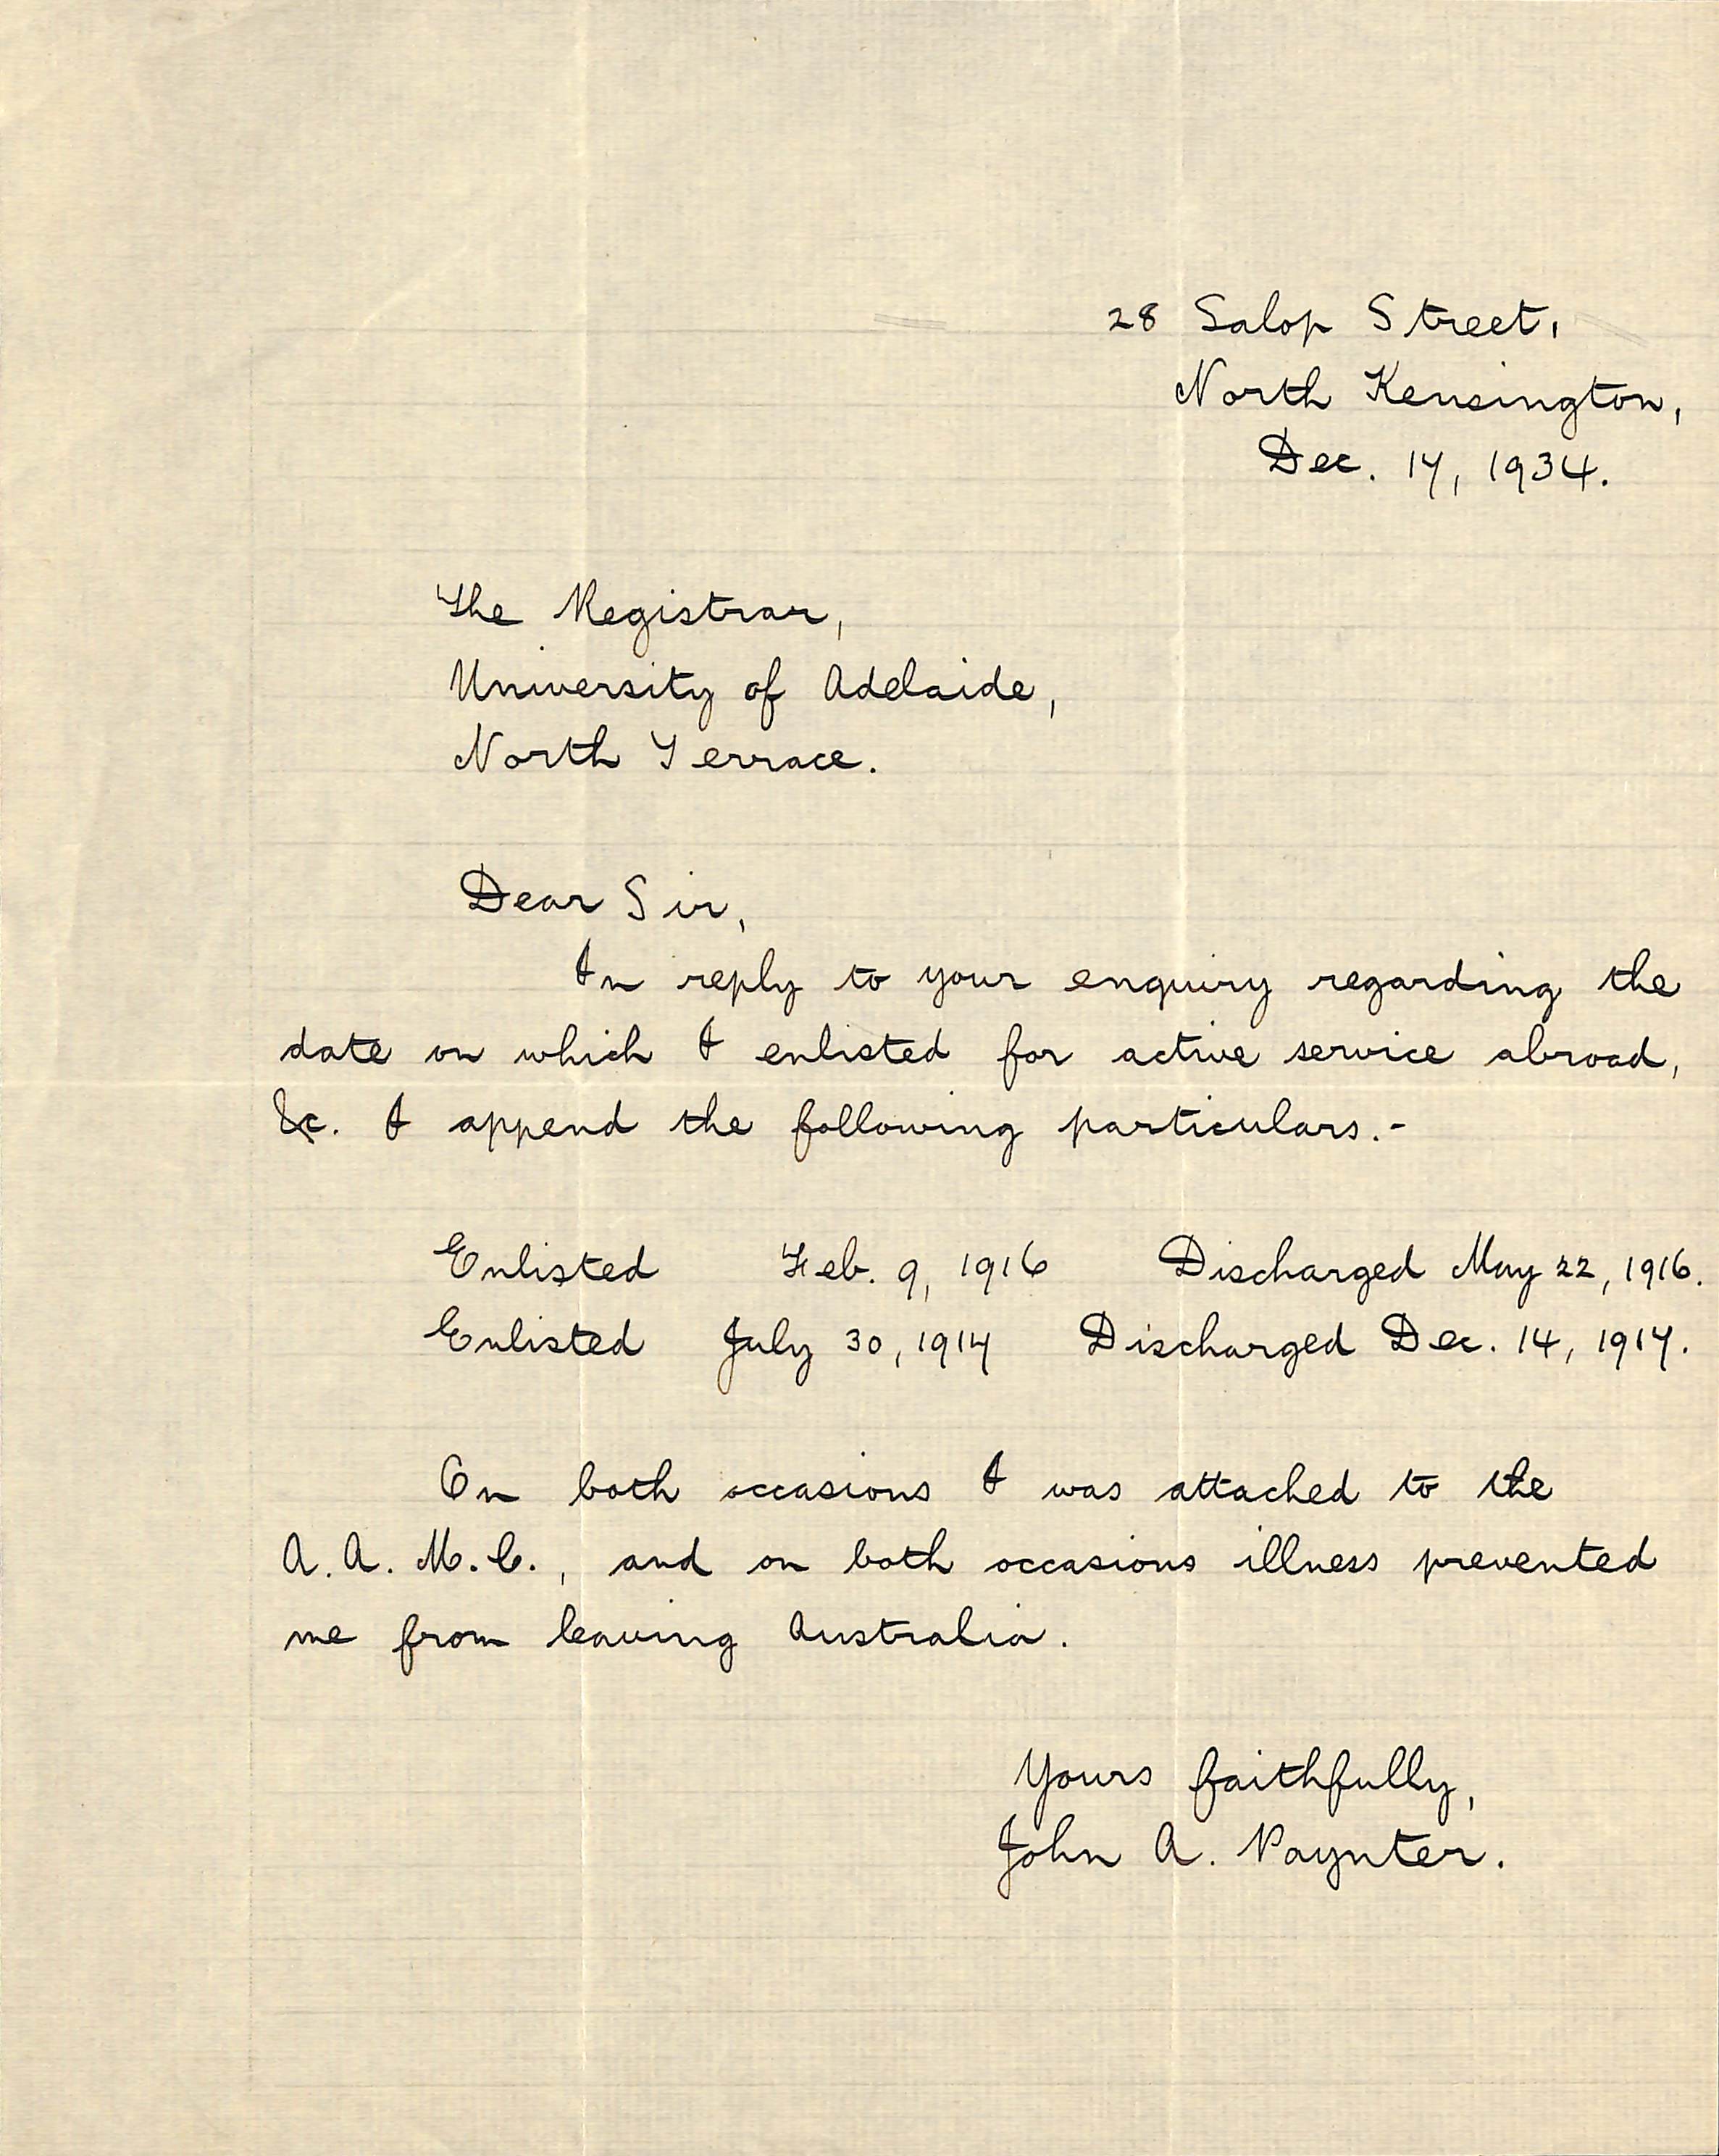 28 Salop Street,
North Kensington,
Dec. 17, 1934.
The Registrar,
University of Adelaide,
North Terrace.
Dear Sir,
In reply to your enquiry regarding the
date on which I enlisted for active service abroad,
&c. I append the following particulars.-
Enlisted Feb. 9, 1916 Discharged May 22, 1916.
Enlisted July 30, 1917 Discharged Dec. 14, 1917.
On both occasions I was attached to the
A.A.M.C., and on both occasions illness prevented
me from leaving Australia.
Yours faithfully,
John A. Paynter.